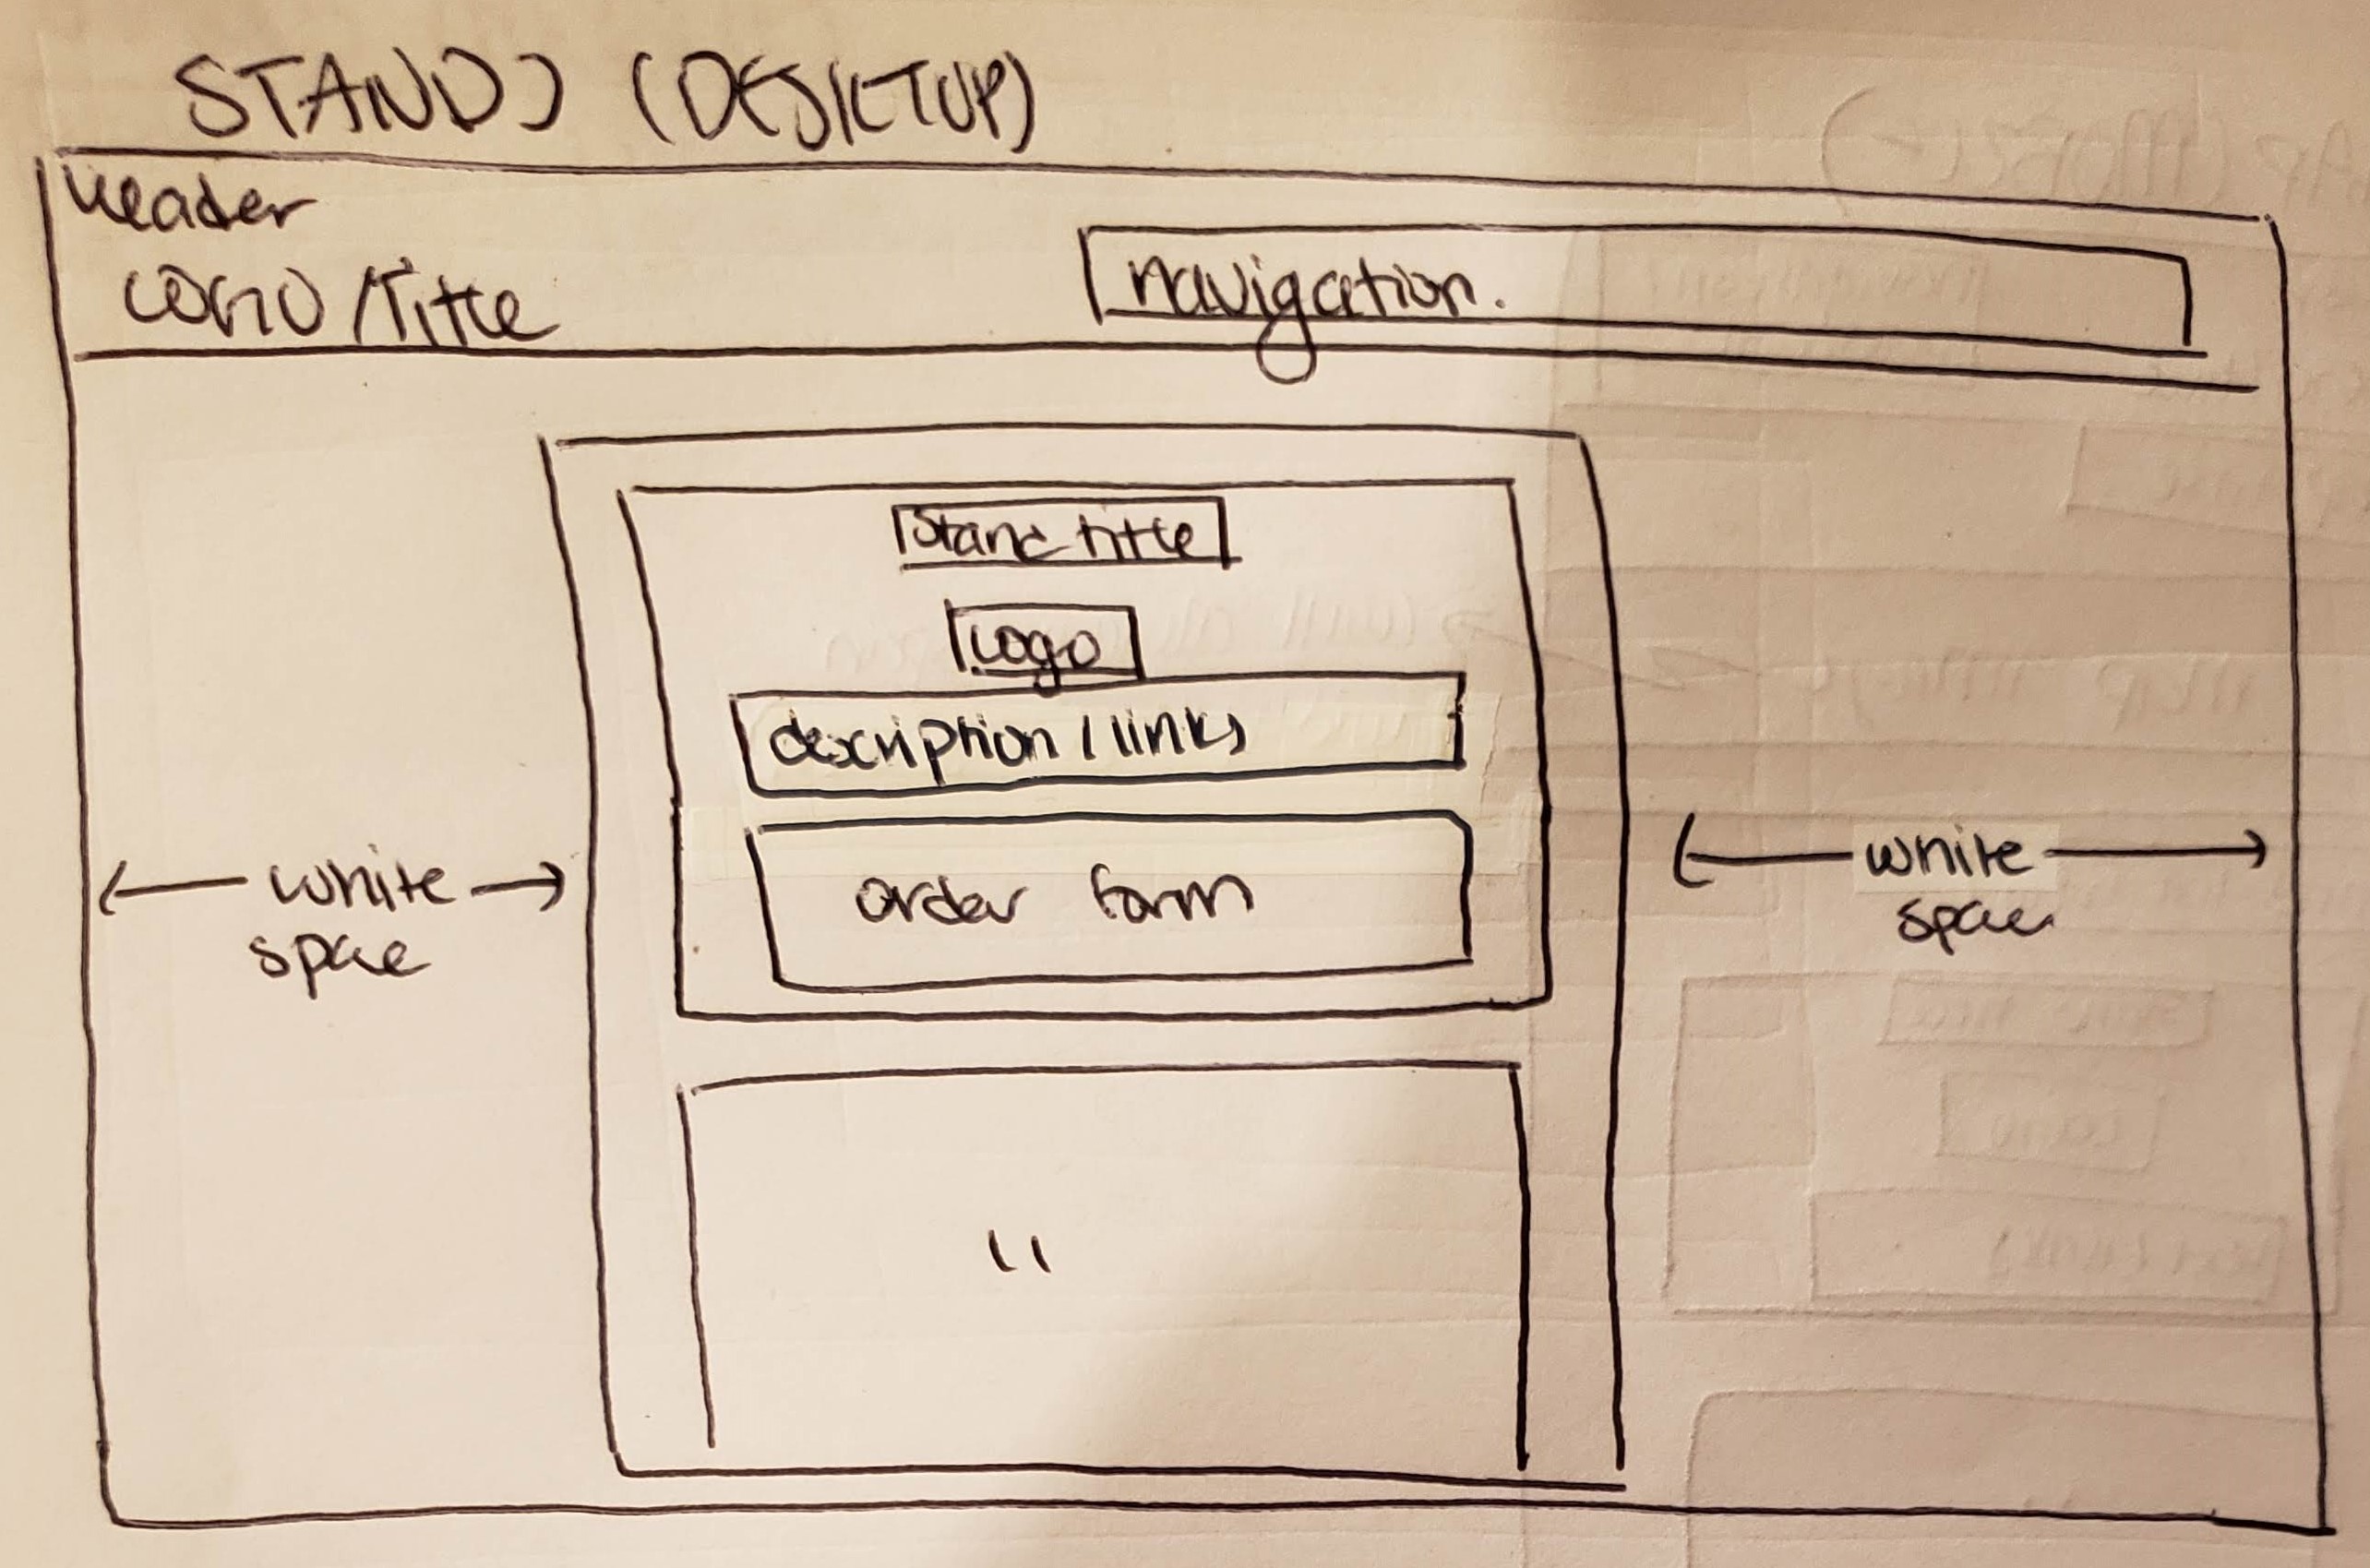 STANDS (DESKTOP)
Header
LOGO/Title
navigation.
Stand title
Logo
description/links
order form
white
space
white
space
"